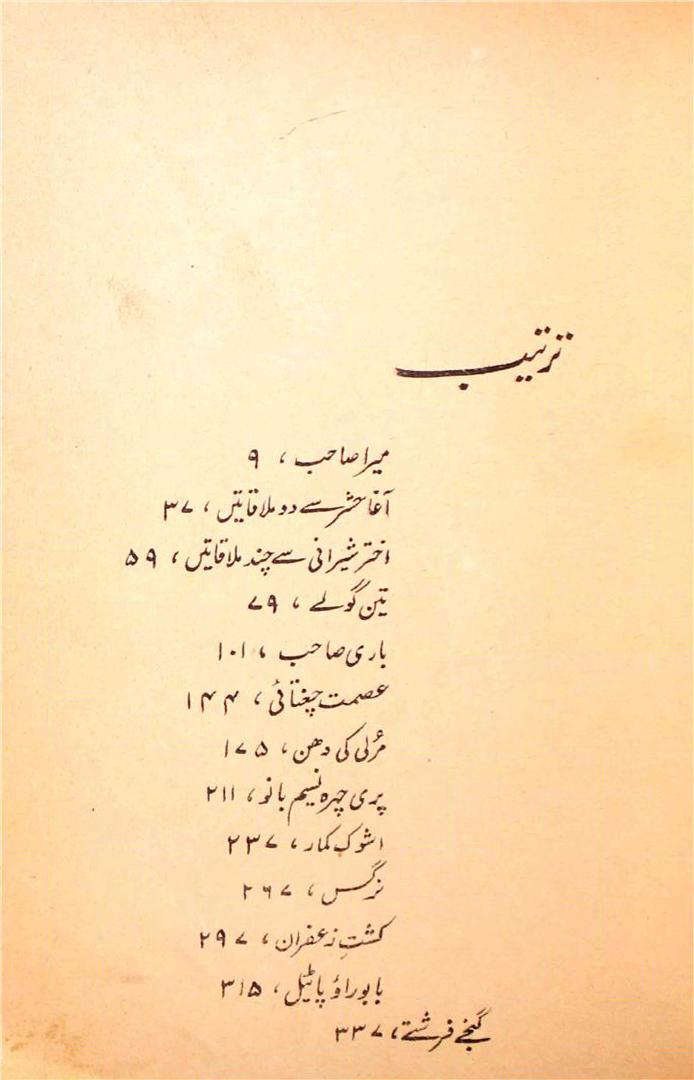 ترتیب
میرا صاحب ، ۹
آغا حشر سے دو ملاقاتیں ، ۳۷
اختر شیرانی سے چند ملاقاتیں ، ۵۹
تین گولے ، ۷۹
باری صاحب ، ۱۰۱
عصمت چغتائی ، ۱۴۴
مُرلی کی دھن ، ۱۷۵
پری چہرہ نسیم بانو ، ۲۱۱
اشوک کمار ، ۲۳۷
نرگس ، ۲۶۷
کشتِ زعفران ، ۲۹۷
بابو راؤ پاٹیل ، ۳۱۵
گنجے فرشتے ، ۳۳۷